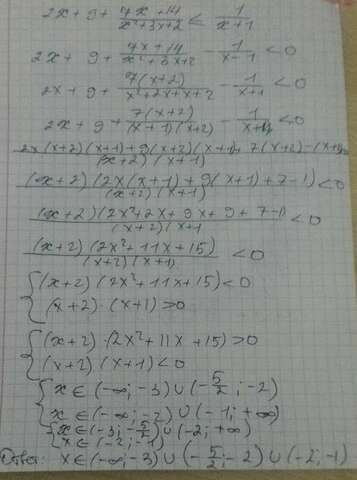 2x + 9 + \frac{7x+14}{x²+3x+2} < \frac{1}{x+1}
2x + 9 + \frac{7x+14}{x²+3x+2} - \frac{1}{x-1} < 0
2x + 9 + \frac{7(x+2)}{x²+2x+x+2} - \frac{1}{x+1} < 0
2x + 9 + \frac{7(x+2)}{(x+1)(x+2)} - \frac{1}{x+1} < 0
\frac{2x(x+2)(x+1)+9(x+2)(x+1)+7(x+2)-(x+2)}{(x+2)(x+1)}
\frac{(x+2)(2x(x+1)+9(x+1)+7-1)}{(x+2)(x+1)} < 0
\frac{(x+2)(2x²+2x+9x+9+7-1)}{(x+2)(x+1} < 0
\frac{(x+2)(2x²+11x+15)}{(x+2)(x+1)} < 0
{(x+2)(2x²+11x+15) < 0
{(x+2)·(x+1) > 0
{(x+2)·(2x²+11x+15) > 0
{(x+2)(x+1) < 0
{x ∈ (-∞; -3) ∪ (-\frac{5}{2}; -2)
{x ∈ (-∞; -2) ∪ (-1; +∞)
{x ∈ (-3; -\frac{5}{2}) ∪ (-2; +∞)
{x ∈ (-2; -1)
Ответ: x ∈ (-∞; -3) ∪ (-\frac{5}{2}; -2) ∪ (-2; -1)